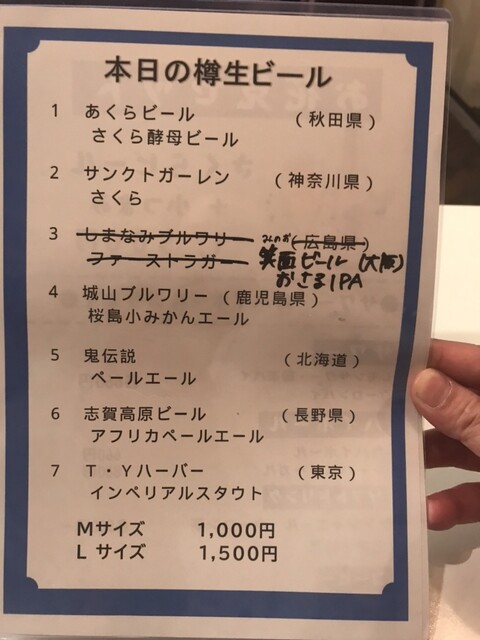 本日の樽生ビール
1 あくらビール (秋田県)
さくら酵母ビール
2 サンクトガーレン (神奈川県)
さくら
3 しまなみブルワリー (広島県)
ファーストラガー
みのお
箕面ビール (大阪)
おさるIPA
4 城山ブルワリー (鹿児島県)
桜島小みかんエール
5 鬼伝説 (北海道)
ペールエール
6 志賀高原ビール (長野県)
アフリカペールエール
7 T・Yハーバー (東京)
インペリアルスタウト
Mサイズ 1,000円
Lサイズ 1,500円